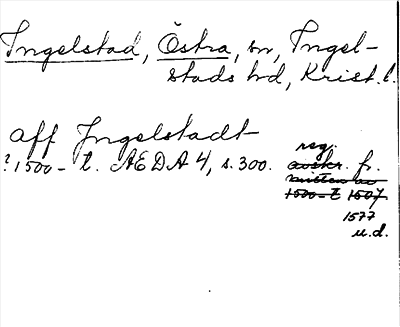 Ingelstad, Östra, sn, Ingel-
stads hd, Krist. l.
aff Jngelstadt
reg.
? 1500-t. AEDA 4, s. 300. avskr. fr.
mitten av
1500-t 1507
1577
u.d.